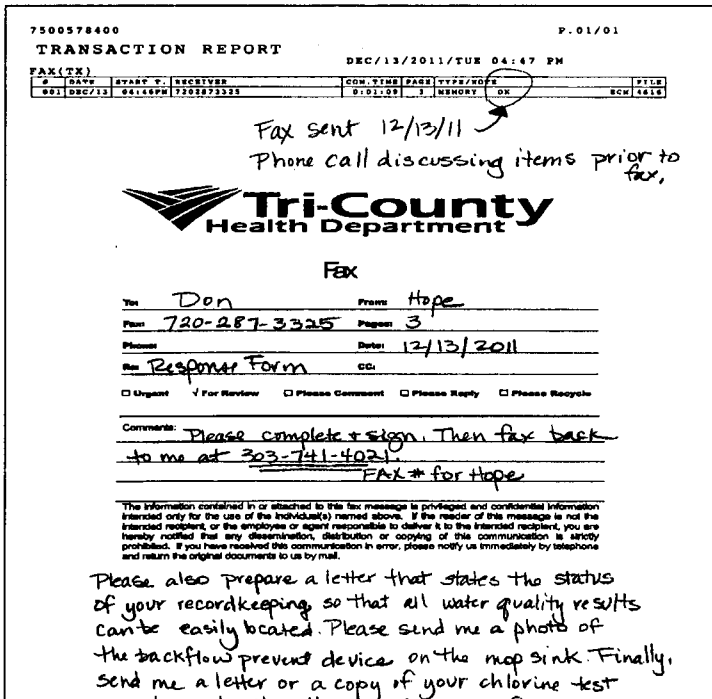 7500578400 P.01/01
TRANSACTION REPORT
DEC/13/2011/TUE 04:47 PM
FAX(TX)
# DATE START T. RECEIVER COM.TIME PAGE TYPE/NOTE FILE
001 DEC/13 04:46PM 7202873325 0:01:09 3 MEMORY OK ECM 4616
Fax sent 12/13/11
Phone call discussing items prior to
fax.
Tri-County
Health Department
Fax
To: Don From: Hope
Fax: 720-287-3325 Pages: 3
Phone: Date: 12/13/2011
Re: Response Form CC:
☐ Urgent √ For Review ☐ Please Comment ☐ Please Reply ☐ Please Recycle
Comments: Please complete + sign. Then fax back
to me at 303-741-4021.
FAX # for Hope
The information contained in or attached to this fax message is privileged and confidential information
intended only for the use of the individual(s) named above. If the reader of this message is not the
intended recipient, or the employee or agent responsible to deliver it to the intended recipient, you are
hereby notified that any dissemination, distribution or copying of this communication is strictly
prohibited. If you have received this communication in error, please notify us immediately by telephone
and return the original documents to us by mail.
Please also prepare a letter that states the status
of your recordkeeping so that all water quality results
can be easily located. Please send me a photo of
the backflow prevent device on the mop sink. Finally,
send me a letter or a copy of your chlorine test